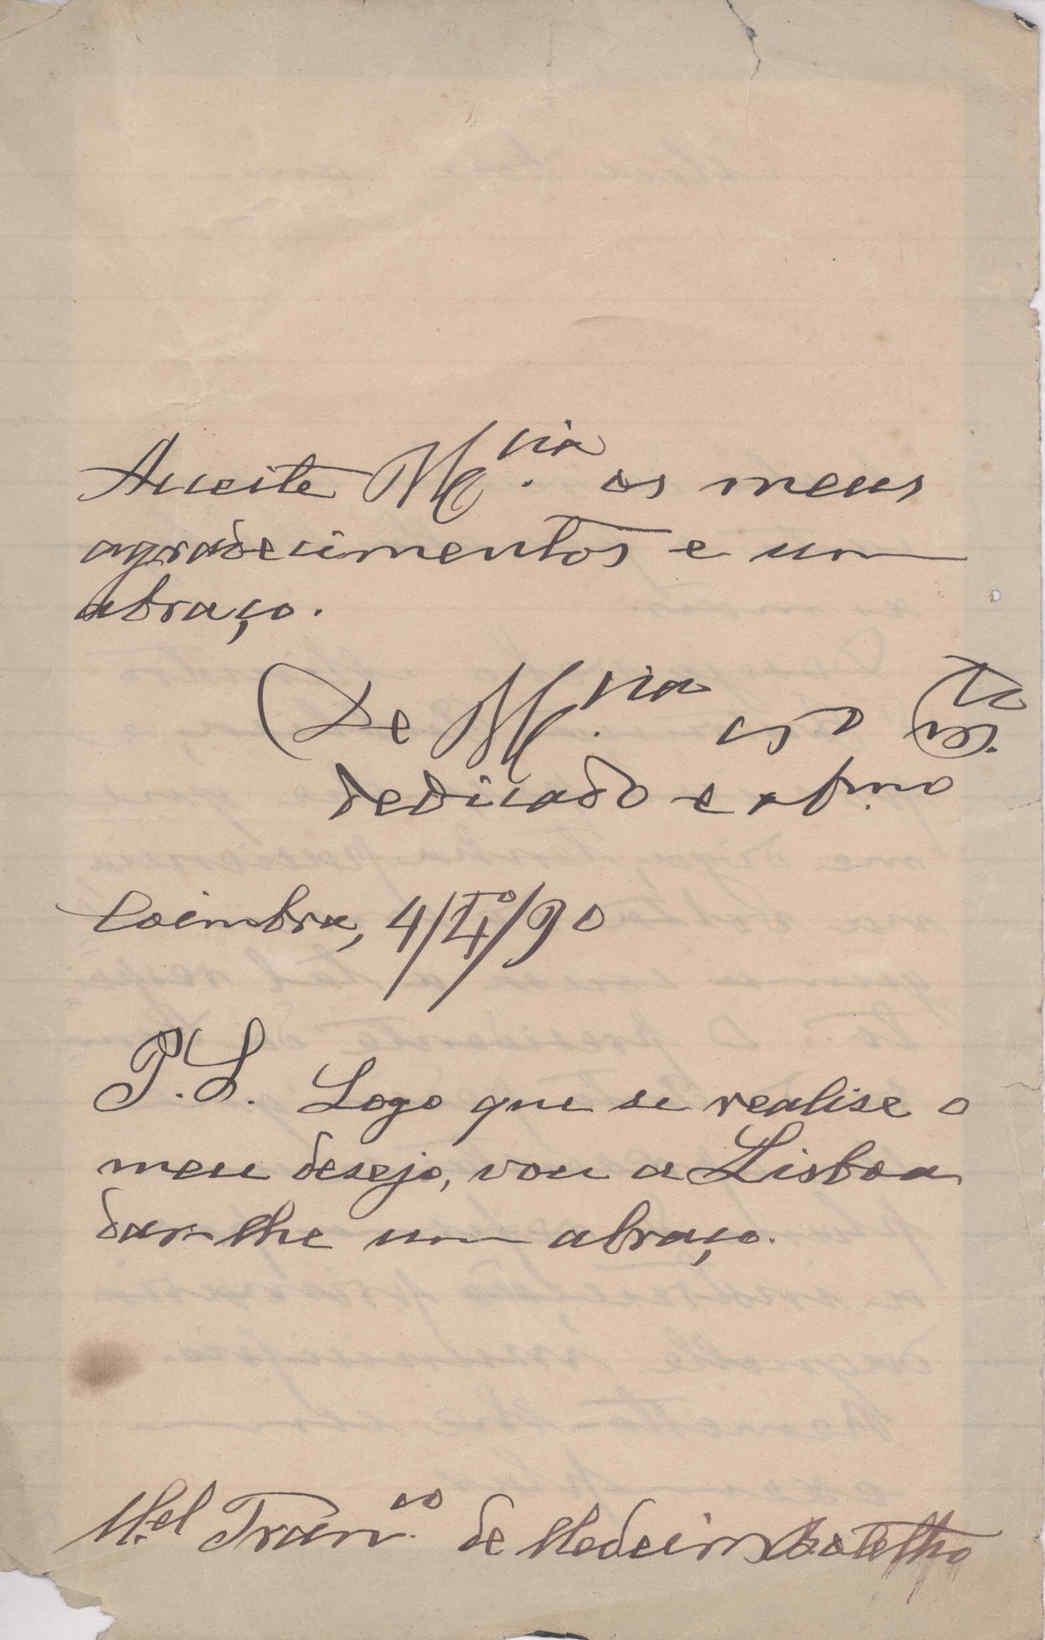 Acceite V. Ex.cia os meus
agradecimentos e um
abraço.
De V. Ex.cia
dedicado e
Coimbra, 4/4º/90
P.S. Logo que se realise o
meu desejo, vou a Lisboa
dar-lhe um abraço.
M.el Fran.co de Medeiros Botelho